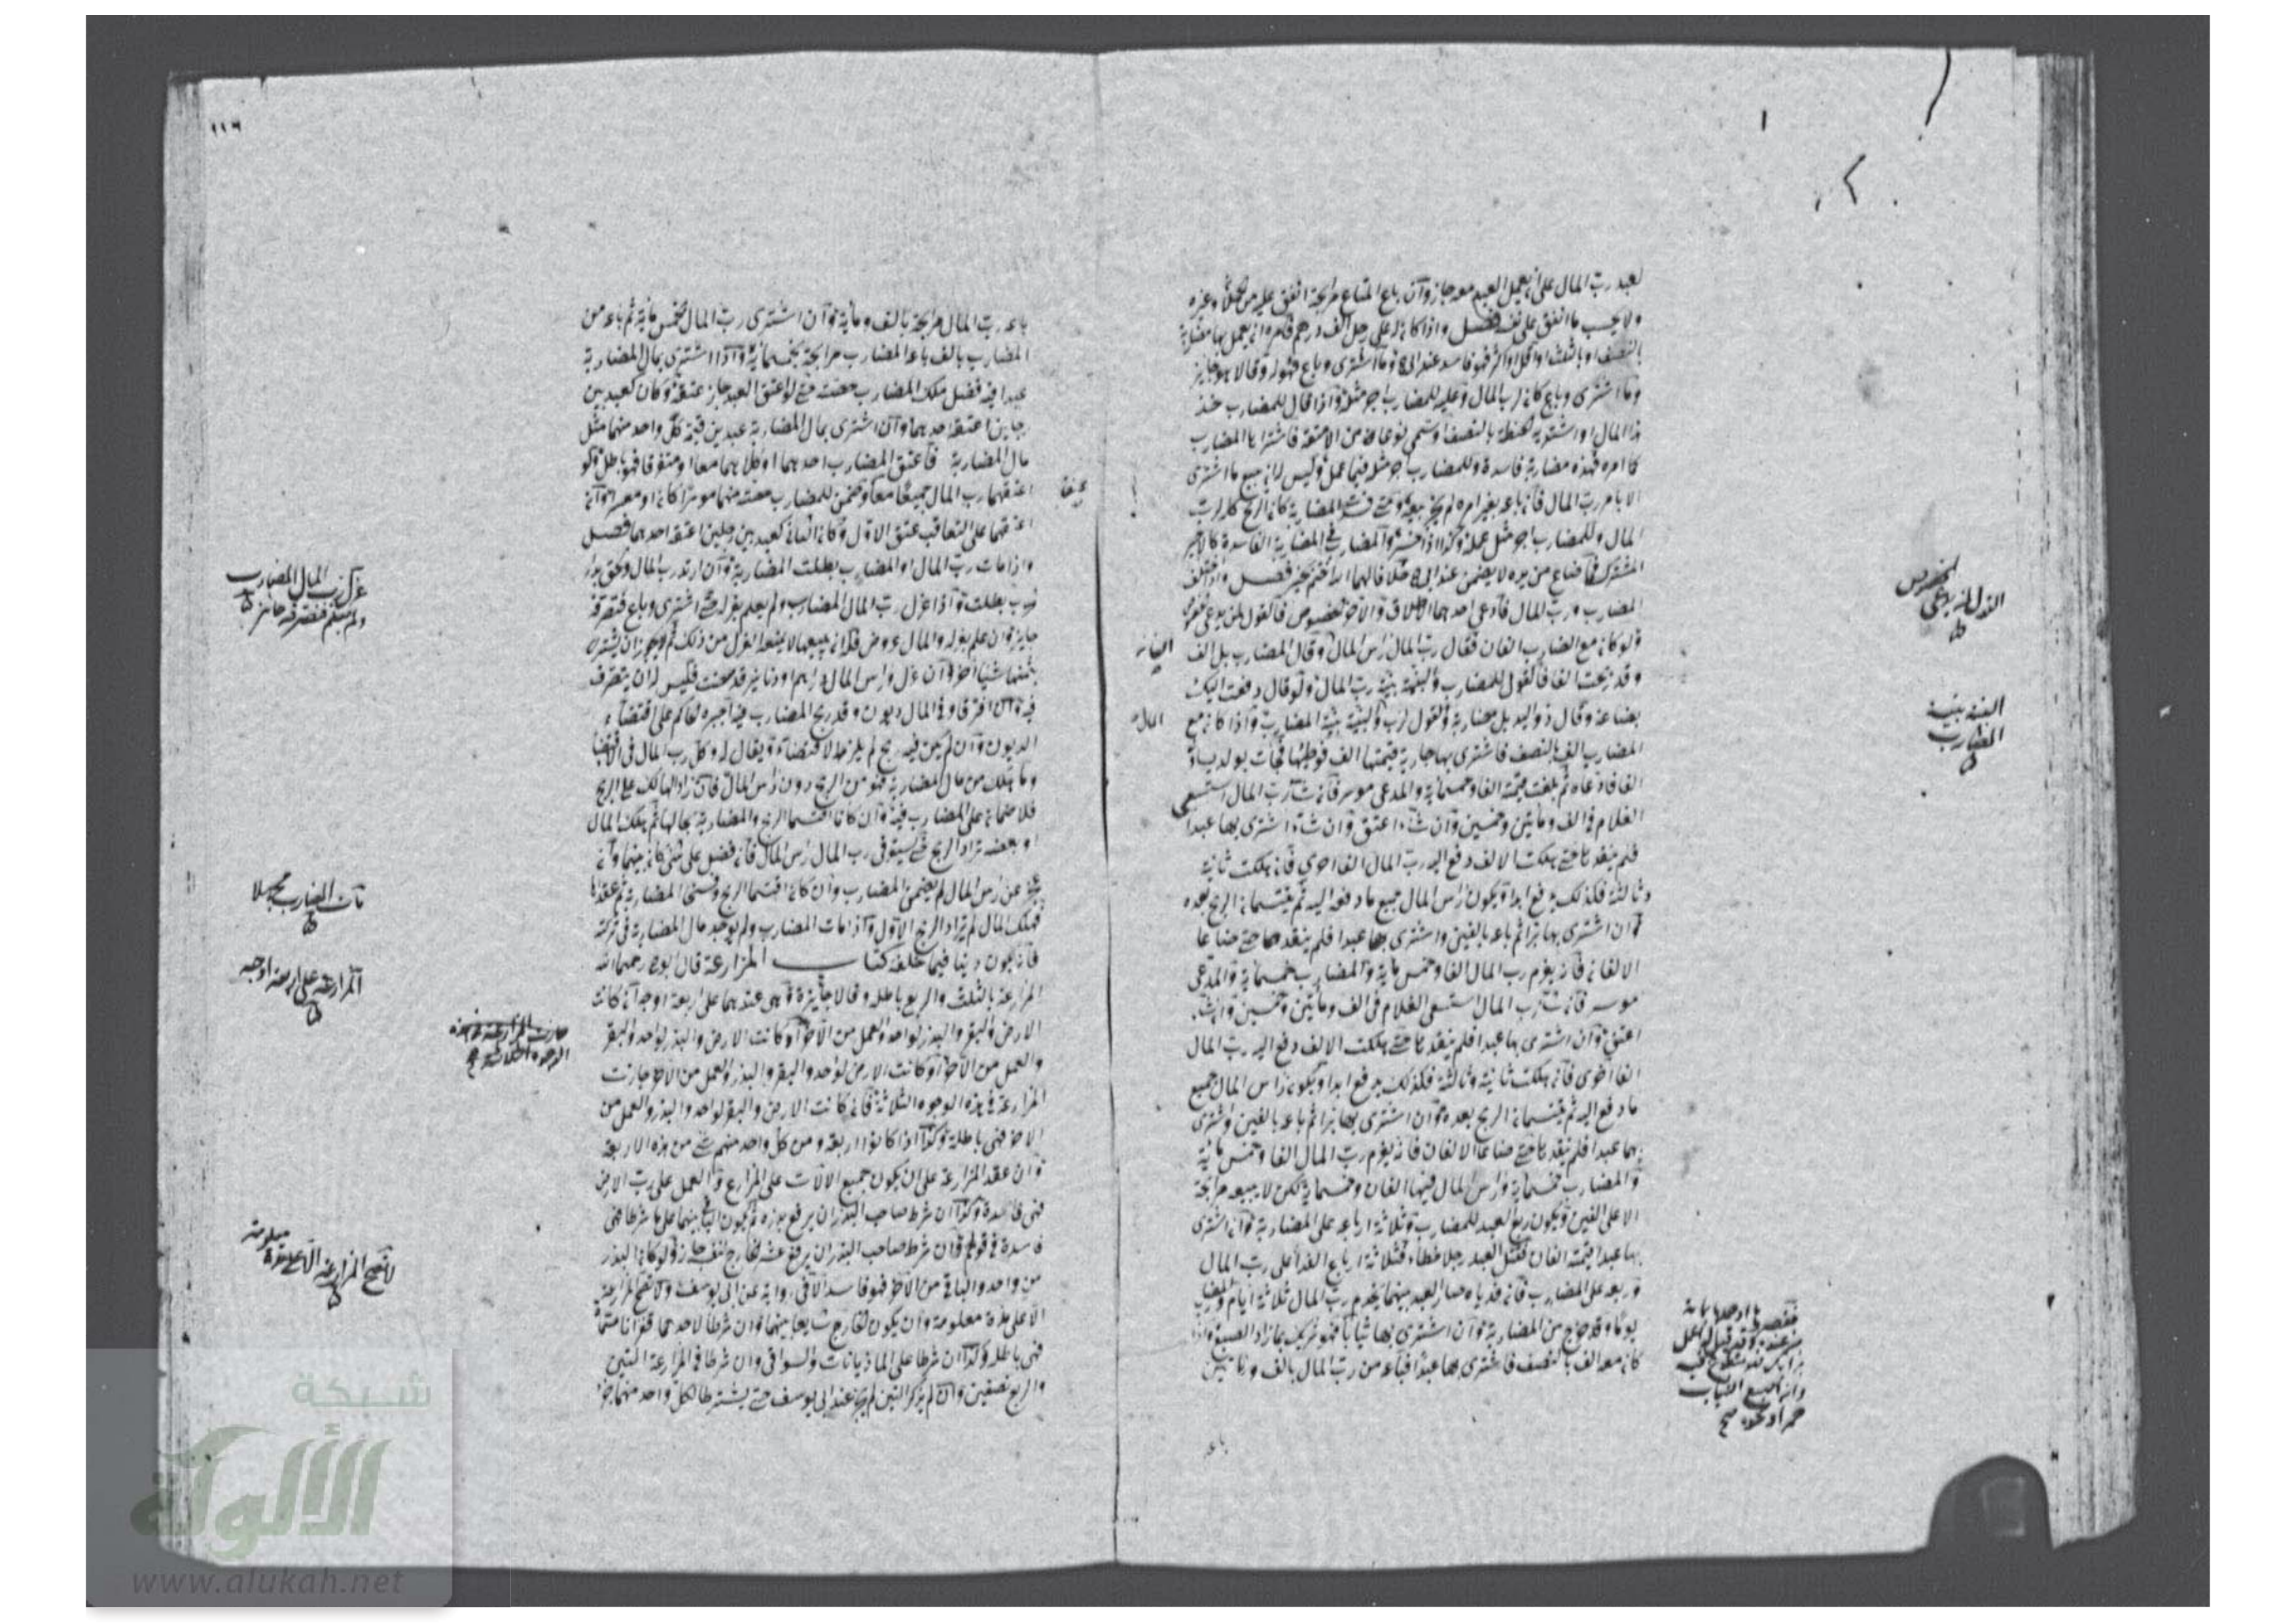 لعبد ربّ المال على ان يعمل العبد معه جاز وآن باع المتاع مرابحة انفق عليه من
ولا يحسب ما انفق على نفسه فصل واذا كان له على رجل الف درهم فامره ان يعمل بها مضاربة
بالنصف او بالثلث او اقل او اكثر فهو فاسد عند ابى ح وما اشترى وباع فهو له وقالا هو جايز
وما اشترى وباع كان لرب المال وعليه للمضارب اجر مثله واذا قال للمضارب خذ
هذا المال واشتر به الحنطة بالنصف او سمى نوعا من الامتعة فاشتراها المضارب
كما امره فهذه مضاربة فاسدة وللمضارب اجر مثله فيما عمل وليس له ان يبيع ما اشترى
الا بامر ربّ المال فان باعه بغير امره لم يجز بيعه ومتى فسدت المضاربة كان الربح كله لرب
المال وللمضارب اجر مثل عمله وكذا اذا خسر والمضارب فى المضاربة الفاسدة كالاجير
المشترك فما ضاع من يده لا يضمن عند ابى ح خلافا لهما فصل واذا اختلف
المضارب وربّ المال فادعى احدهما الاطلاق والآخر الخصوص فالقول لمن يدعى
ولو كان مع المضارب الفان فقال ربّ المال راس المال وقال المضارب بل الف
وقد ربحت الفا فالقول للمضارب والبينة بينة ربّ المال ولو قال دفعت اليك
بضاعة وقال ذو اليد بل مضاربة فالقول لرب والبينة بينة المضارب واذا كان مع
المضارب الف بالنصف فاشترى بها جارية قيمتها الف فوطئها فجات بولد يساوى
الفا فادعاه ثم بلغت قيمته الفا وخمسماية والمدعى موسر فان شآء ربّ المال استسعى
الغلام فى الف ومأيتين وخمسين وان شآء اعتق وان شآء اشترى بها عبدا
فلم ينقدها حتى هلكت الالف دفع اليه ربّ المال الفا اخرى فان هلكت ثانية
وثالثة فكذلك يدفع ابدا ويكون راس المال جميع ما دفع اليه ثم يقتسمان الربح بعده
وان اشترى بها بزا ثم باعه بالفين واشترى بهما عبدا فلم ينقدهما حتى ضاعا
الالفان فانه يغرم رب المال الفا وخمس ماية والمضارب خمسماية والمدعى
موسر فان شآء رب المال استسعى الغلام فى الف ومأيتين وخمسين وان شآء
اعتق وآن اشترى بها عبدا فلم ينقدها حتى هلكت الالف دفع اليه ربّ المال
الفا اخرى فان هلكت ثانية وثالثة فكذلك يدفع ابدا ويكون راس المال جميع
ما دفع اليه ثم يقتسمان الربح بعده وآن اشترى بها بزا ثم باعه بالفين واشترى
بهما عبدا فلم ينقدها حتى ضاعا الالفان فانه يغرم ربّ المال الفا وخمس ماية
والمضارب خمسماية وراس المال فيها الفان وخمسماية لكن لا يبيعه مرابحة
الا على الفين ويكون ربع العبد للمضارب وثلاثة ارباعه على المضاربة وان اشترى
بها عبدا قيمته الفان فقتل العبد رجلا خطاء فثلاثة ارباع الفدآء على ربّ المال
وربعه على المضارب فان فدياه صار العبد بينهما يخدم ربّ المال ثلاثة ايام والمضارب
يوما وقد خرج من المضاربة وان اشترى بها ثيابا فهو شريك بما زاد الصبغ واذا
كان معه الف بالنصف فاشترى بها عبدا فباعه من ربّ المال بالف ومأيتين
باعه
المال
القول لمن يدعى
البينة بينة
المضارب
١١٦
باعه ربّ المال مرابحة بالف ومأية وآن اشترى ربّ المال بخمس ماية ثم باعه من
المضارب بالف باعه المضارب مرابحة بخمسماية واذا اشترى بمال المضاربة
عبدا فيه فضل ملك المضارب حصته حتى لو اعتق العبد جاز عتقه وكان كعبد بين
رجلين اعتقه احدهما وآن اشترى بمال المضاربة عبدين قيمة كل واحد منهما مثل
مال المضاربة فاعتق المضارب احدهما او كلاهما معا او متفرقا فهو باطل ولو
اعتقهما رب المال جميعا معا وضمن للمضارب حصته منهما موسرا كان او معسرا وآن
اعتقهما على التعاقب عتق الاول وكان الثانى كعبد بين رجلين اعتقه احدهما فصل
واذا مات ربّ المال او المضارب بطلت المضاربة وآن ارتد رب المال ولحق بدار
الحرب بطلت واذا عزل ربّ المال المضارب ولم يعلم بعزله حتى اشترى وباع فتصرفه
جايز وان علم بعزله والمال عروض فله ان يبيعها لا يمنعه العزل من ذلك ثم لا يجوز ان يشترى
بثمنها شيئا آخر وآن عزل وراس المال دراهم او دنانير قد نضت فليس له ان يتصرف
فيه وان افترقا وفى المال ديون وقد ربح المضارب فيه اجبره الحاكم على اقتضآء
الديون وآن لم يكن فيه ربح لم يلزمه الاقتضآء ويقال له وكّل رب المال فى الاقتضا
وما هلك من مال المضاربة فهو من الربح دون راس المال فان زاد الهالك على الربح
فلا ضمان على المضارب فيه وان كانا اقتسما الربح والمضاربة بحالها ثم هلك المال
او بعضه ترادا الربح حتى يستوفى رب المال راس المال فان فضل شئ كان بينهما وآن
نقص عن راس المال لم يضمن المضارب وان كانا اقتسما الربح وفسخا المضاربة ثم عقداها
فهلك المال لم يترادا الربح الاول واذا مات المضارب ولم يوجد مال المضاربة فى تركته
فانه يكون دينا فيما خلفه كتاب المزارعة قال ابو ح رحمه الله
المزارعة بالثلث والربع باطلة وقالا جايزة وهى عندهما على اربعة اوجه آن كانت
الارض والبقر والبذر لواحد والعمل من الآخر او كانت الارض والبذر لواحد والبقر
والعمل من الآخر او كانت الارض لواحد والبقر والبذر والعمل من الاخر جازت
المزارعة فى هذه الوجوه الثلاثة فان كانت الارض والبقر لواحد والبذر والعمل من
الاخر فهى باطلة وكذا اذا كانوا اربعة ومن كل واحد منهم شئ من هذه الاربعة
وان عقد المزارعة على ان يكون جميع الالات على المزارع والعمل على رب الارض
فهى فاسدة وكذا ان شرط صاحب البذر ان يرفع بذره ويكون الباقى بينهما على ما شرطا فهى
فاسدة فى قولهم وان شرط صاحب البذر ان يرفع عشر الخارج لنفسه جاز ولو كان البذر
من واحد والباقى من الآخر فهو فاسد الا فى رواية عن ابى يوسف ولا تصح المزارعة
الا على مدة معلومة وان يكون الخارج شايعا بينهما وان شرطا لاحدهما قفزانا مسماة
فهى باطلة وكذا ان شرطا على الماذيانات والسواقى وان شرطا فى المزارعة التبن
والربع نصفين وان لم يذكر التبن لم يجز عند ابى يوسف حتى يشترطا لكل واحد منهما جزا
عزل رب المال المضارب
ولم يعلم فتصرفه جائز
مات المضارب مجهلا
المزارعة على اربعة اوجه
جازت المزارعة فى هذه
الوجوه الثلاثة
لا تصح المزارعة الا على مدة معلومة
شبكة
الألوكة
www.alukah.net